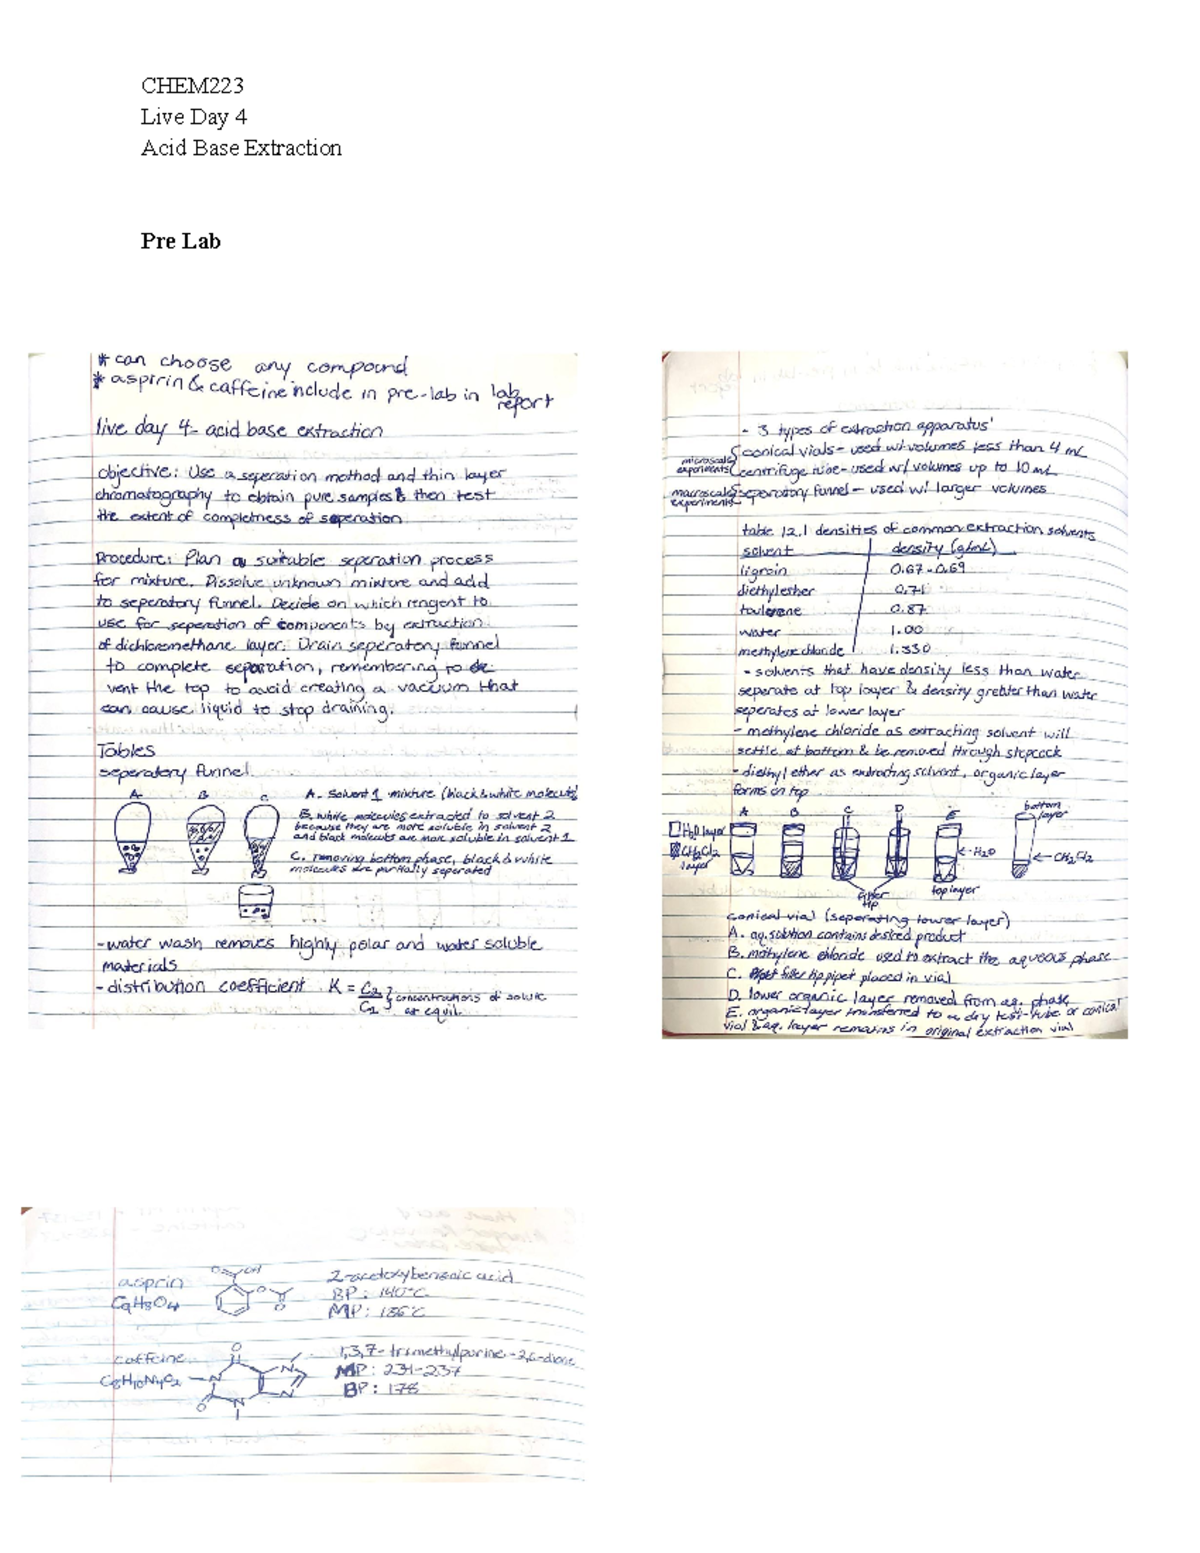 CHEM223
Live Day 4
Acid Base Extraction
Pre Lab
* can choose any compound
* aspirin & caffeine include in pre-lab in lab report
live day 4- acid base extraction
objective: Use a seperation method and thin layer
chromatography to obtain pure samples & then test
the extent of completness of seperation
Procedure: Plan a suitable seperation process
for mixture. Dissolve unknown mixture and add
to seperatory funnel. Decide on which reagent to
use for seperation of components by extraction
of dichloromethane layer. Drain seperatory funnel
to complete separation, remembering to
vent the top to avoid creating a vacuum that
can cause liquid to stop draining.
Tables
seperatory funnel
A B C
A. Solvent 1 mixture (black & white molecules)
B. white molecules extracted to solvent 2
because they are more soluble in solvent 2
and black molecules are more soluble in solvent 1
C. removing bottom phase, black & white
molecules are partially seperated
-water wash removes highly polar and water soluble
materials
- distribution coefficient K = C2 } concentrations of solute
C1 at equil.
- 3 types of extraction apparatus'
microscale experiments { conical vials - used w/ volumes less than 4 mL
centrifuge tube - used w/ volumes up to 10 mL
macroscale experiments { seperatory funnel - used w/ larger volumes
table 12.1 densities of common extraction solvents
solvent density (g/mL)
ligroin 0.67-0.69
diethyl ether 0.71
toulene 0.87
water 1.00
methylene chloride 1.330
- solvents that have density less than water
seperate at top layer & density greater than water
seperates at lower layer
- methylene chloride as extracting solvent will
settle at bottom & be removed through stopcock
- diethyl ether as extracting solvent, organic layer
forms on top
A B C D E bottom layer
H2O layer
CH2Cl2 layer
filter tip
←H2O
top layer
← CH2Cl2
conical vial (seperating lower layer)
A. aq. solution contains desired product
B. methylene chloride used to extract the aqueous phase
C. filter tip pipet placed in vial
D. lower organic layer removed from aq. phase
E. organic layer transferred to a dry test-tube or conical
vial & aq. layer remains in original extraction vial
asprin
C9H8O4
O OH
O
O
2-acetoxybenzoic acid
BP: 140°C
MP: 136°C
caffeine
C8H10N4O2
O
N
N
O
N
N
1,3,7-trimethylpurine-2,6-dione
MP: 231-237
BP: 178